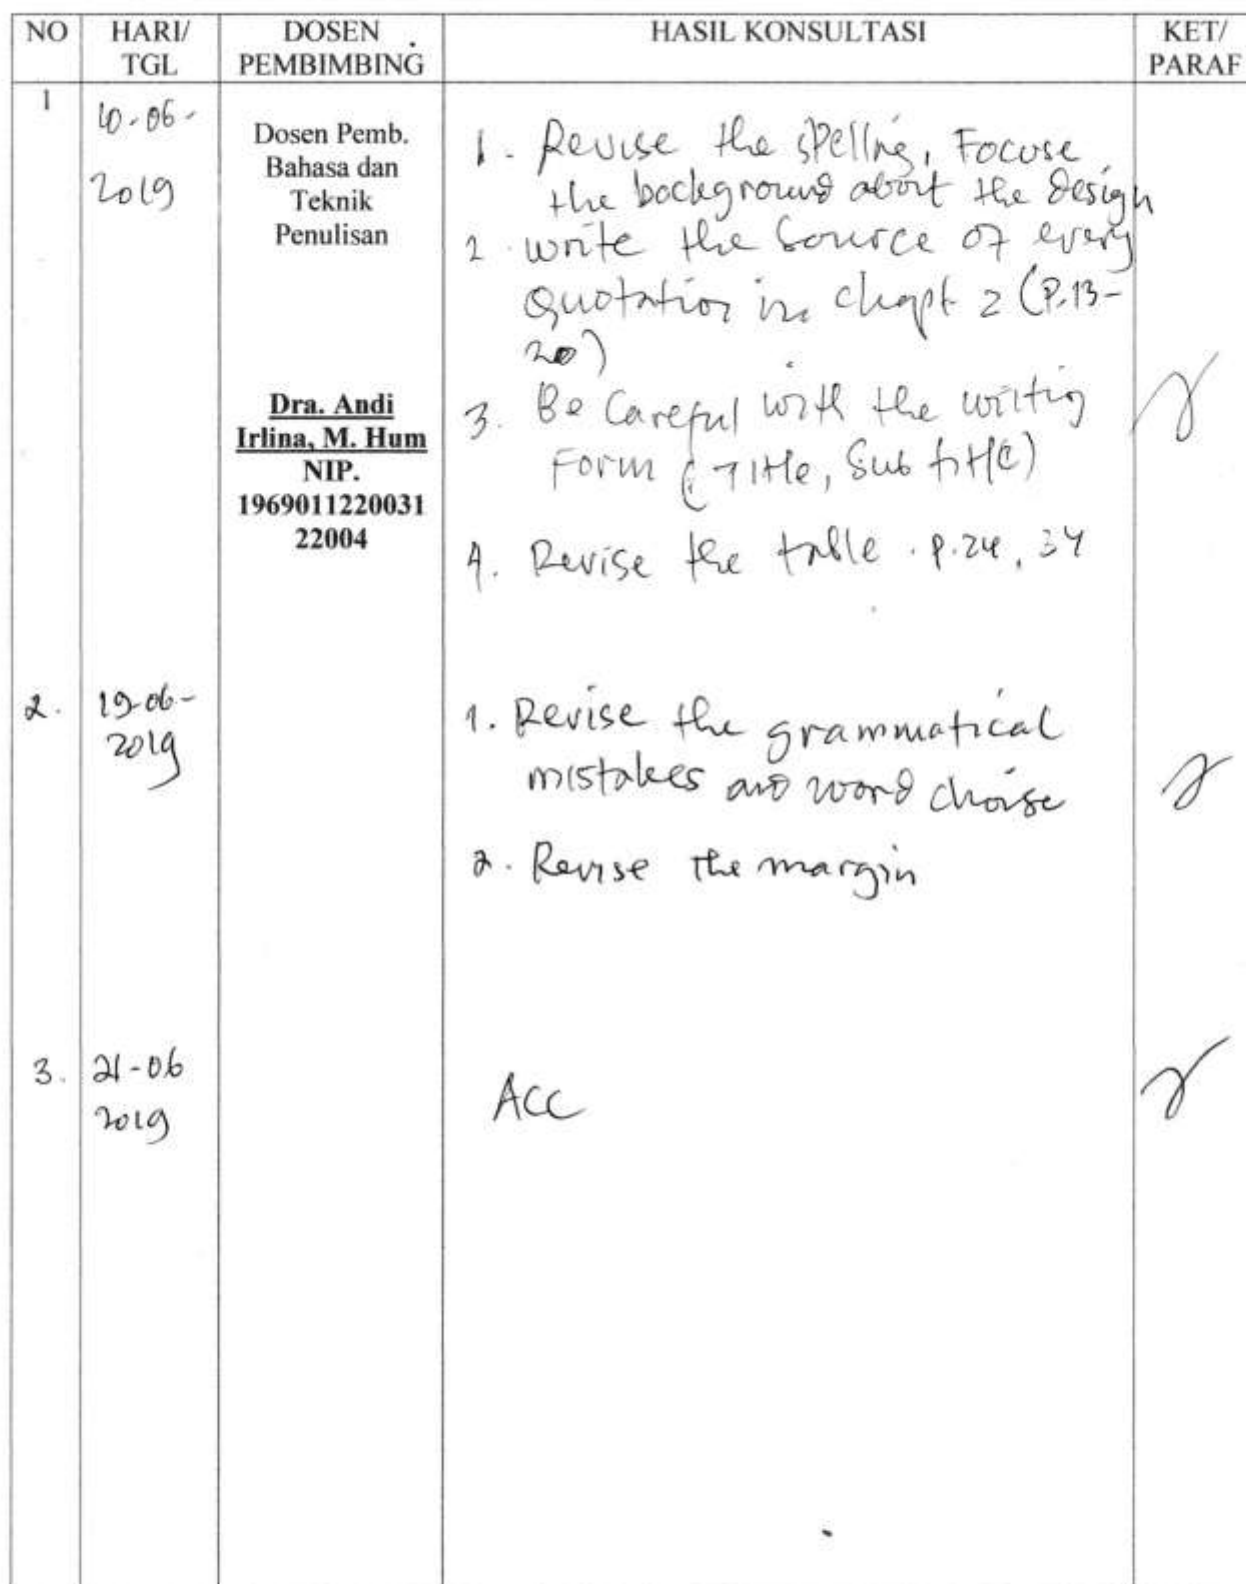 NO HARI/ DOSEN HASIL KONSULTASI KET/
TGL PEMBIMBING PARAF
1
10-06-
2019
Dosen Pemb.
Bahasa dan
Teknik
Penulisan
Dra. Andi
Irlina, M. Hum
NIP.
1969011220031
22004
1. Revise the spelling, Focuse
the background about the design
2. write the source of every
Quotation in chapt 2 (P.13-
20)
3. Be Careful with the writing
Form (Title, Sub title)
4. Revise the table . p.24, 34
2. 19-06-
2019
1. Revise the grammatical
mistakes and word choise
2. Revise the margin
3. 21-06
2019
ACC